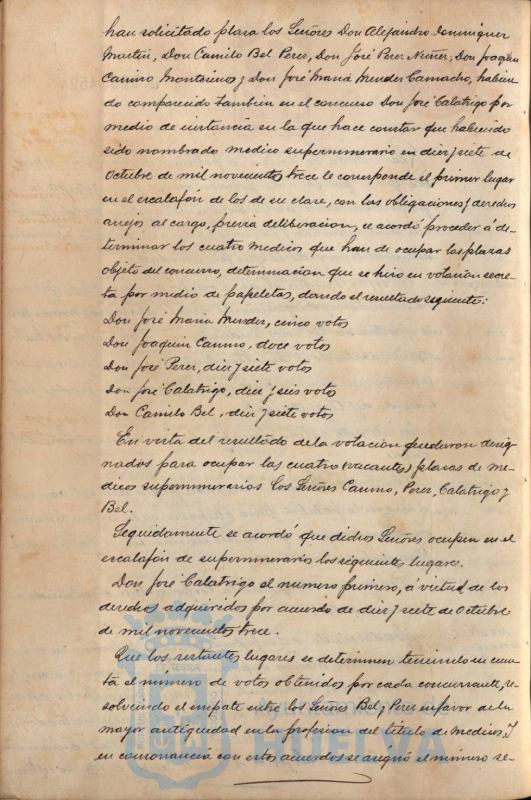 han solicitado plaza los Señores Don Alejandro Dominguez
Martin, Don Camilo Bel Perez, Don José Perez Nuñez, Don Joaquin
Camino Montarinos y Don José Maria Mendez Camacho, habien-
do comparecido tambien en el concurso Don José Calatrigo por
medio de instancia en la que hace constar que habiendo
sido nombrado medico supernumerario en diez y siete de
Octubre de mil novecientos trece le corresponde el primer lugar
en el escalafón de los de su clase, con las obligaciones y derechos
anejos al cargo, previa deliberacion, se acordó proceder á de-
terminar los cuatro medicos que han de ocupar las plazas
objeto del concurso, determinacion que se hizo en votacion secre-
ta por medio de papeletas, dando el resultado siguiente:
Don José Maria Mendez, cinco votos
Don Joaquin Camino, doce votos
Don José Perez, diez y siete votos
Don José Calatrigo, diez y seis votos
Don Camilo Bel, diez y siete votos
En vista del resultado de la votacion quedaron desig-
nados para ocupar las cuatro (vacantes) plazas de me-
dicos supernumerarios los Señores Camino, Perez, Calatrigo y
Bel.
Seguidamente se acordó que dichos Señores ocupen en el
escalafón de supernumerarios los siguientes lugares.
Don José Calatrigo el numero primero, á virtud de los
derechos adquiridos por acuerdo de diez y siete de Octubre
de mil novecientos trece.
Que los restantes lugares se determinen teniendo en cuen-
ta el numero de votos obtenidos por cada concursante, re-
solviendo el empate entre los Señores Bel y Perez en favor de la
mayor antigüedad en la profesion del titulo de Medicos. Y
en consonancia con estos acuerdos se asignó el numero se-
HUELVA